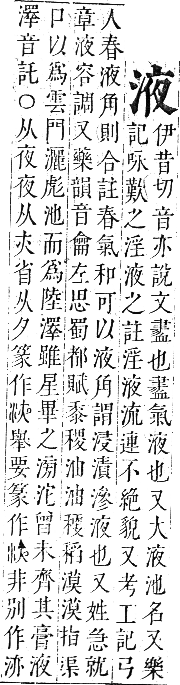 液伊昔切音亦說文𧗁也𧗁氣液也又大液池名又樂
記咏歎之淫液之註淫液流連不絕貌又考工記弓
人春液角則合註春氣和可以液角謂浸漬滲液也又姓急就
章液容調又藥韻音龠左思蜀都賦黍稷油油稉稻漠漠指渠
口以爲雲門灑滮池而爲陸澤雖星畢之滂沱曾未齊其膏液
澤音託○从夜夜从夾省从夕篆作 舉要篆作 非別作㳊